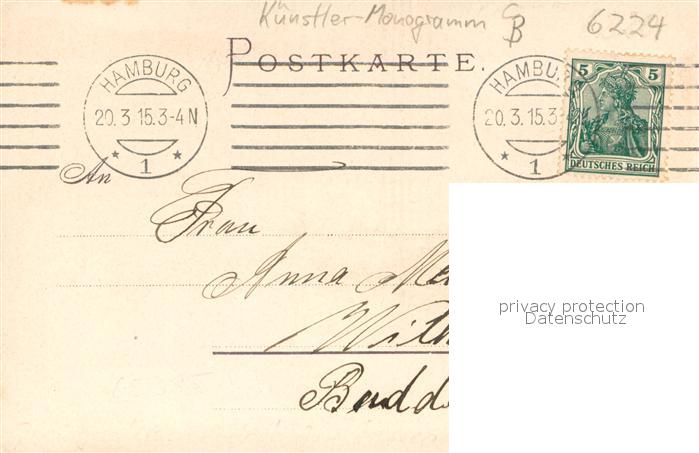 Künstler-Monogramm CB 6224
POSTKARTE.
HAMBURG
20.3.15.3-4N
* 1 *
HAMBU
20.3.15.3
* 1
5 5
DEUTSCHES REICH
An
Frau
Anna Me
Wilh
Budd
privacy protection
Datenschutz